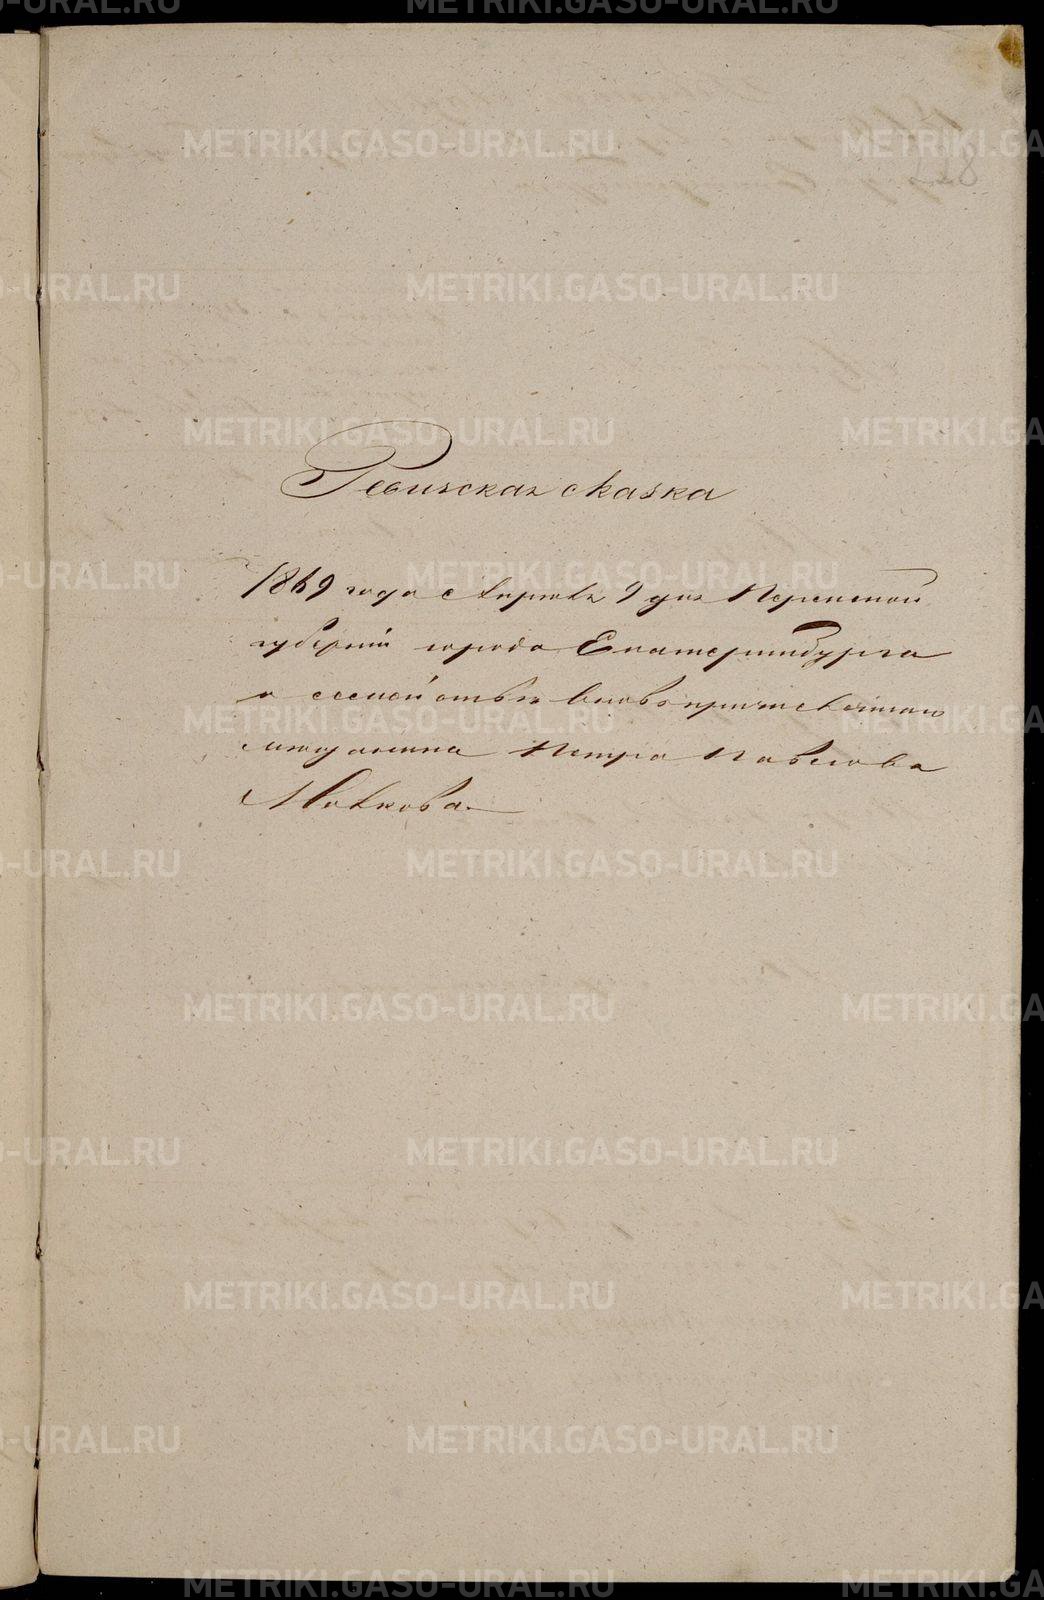 Ревизская сказка
1869 года Апреля 9 дня Пермской
губернiи города Екатеринбурга
о семействѣ вновь причисленнаго
мещанина Петра Павлова
METRIKI.GASO-URAL.RU